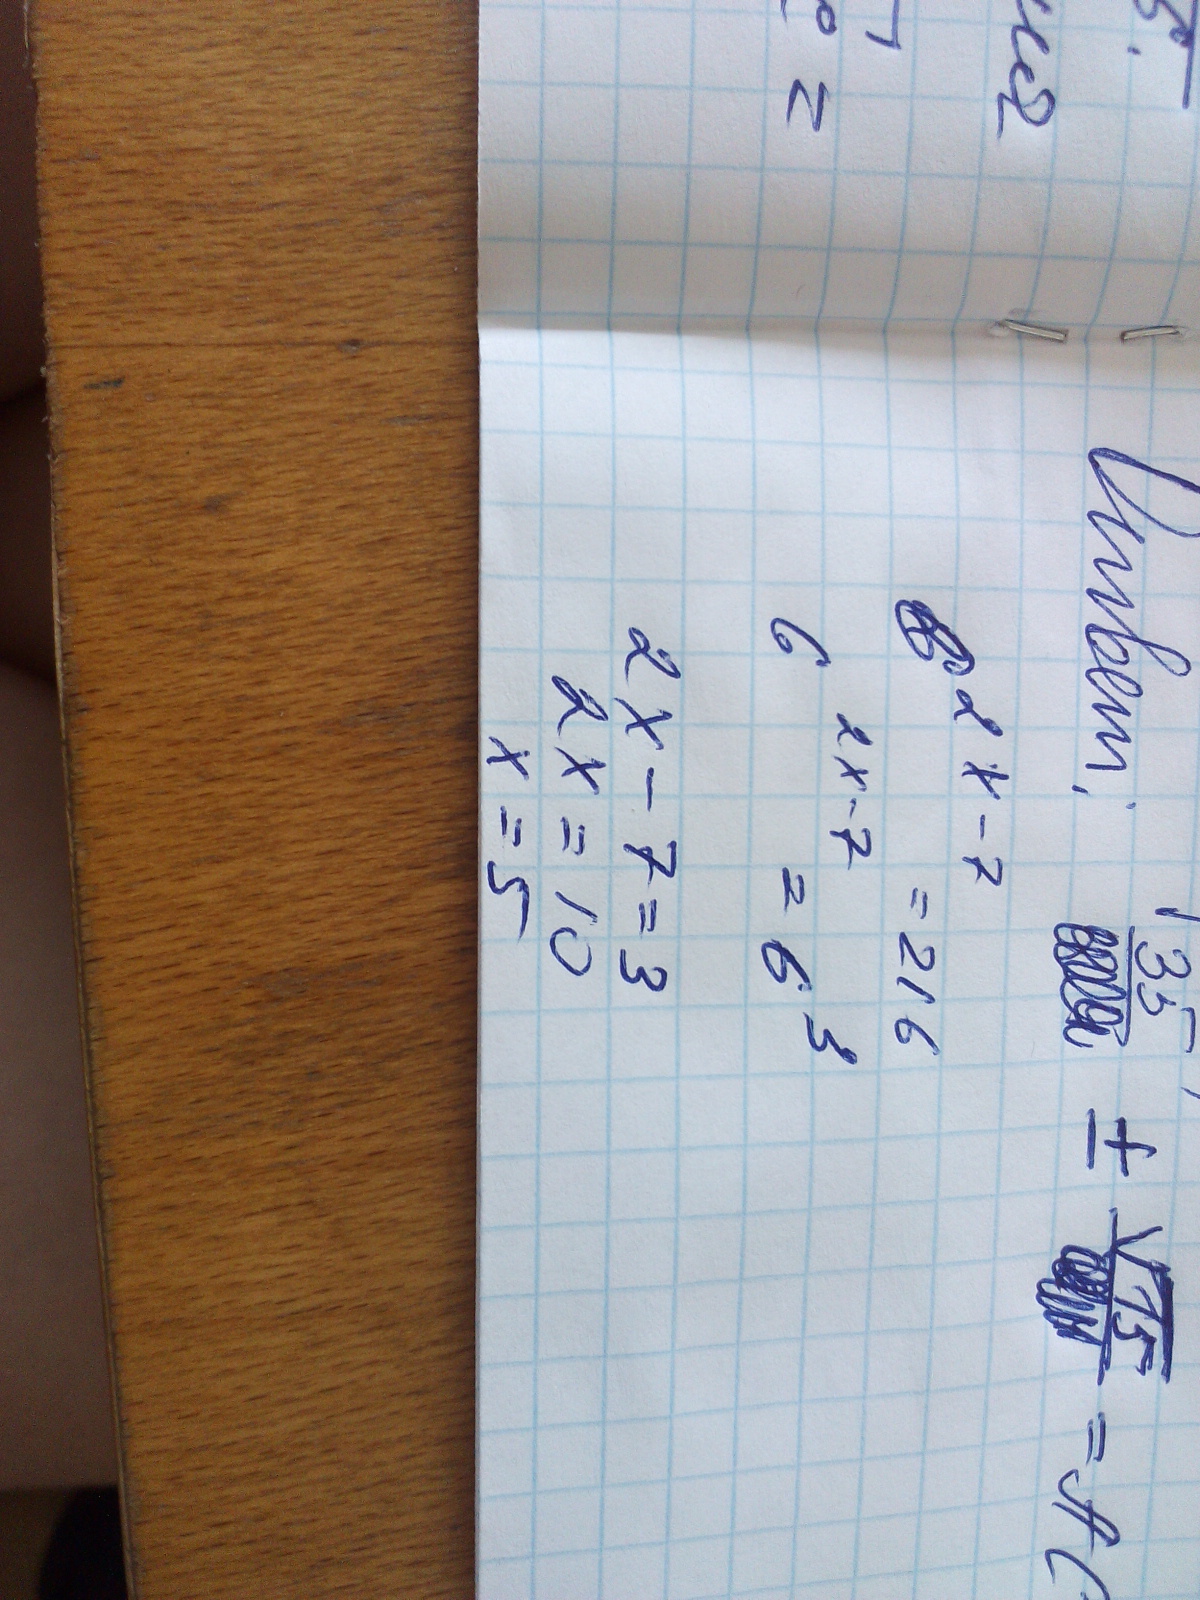 Ответ:
± √15 =
6^2x-7 = 216
6^2x-7 = 6^3
2x-7=3
2x=10
x=5